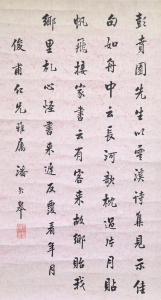 彭賁園先生以雲溪詩集見示佳
句如舟中云長河欹枕過片月貼
帆飛接家書云有客來故鄉貽我
鄉里札心怪書來遲反覆看年月
俊甫仁兄雅屬 潘齡皋